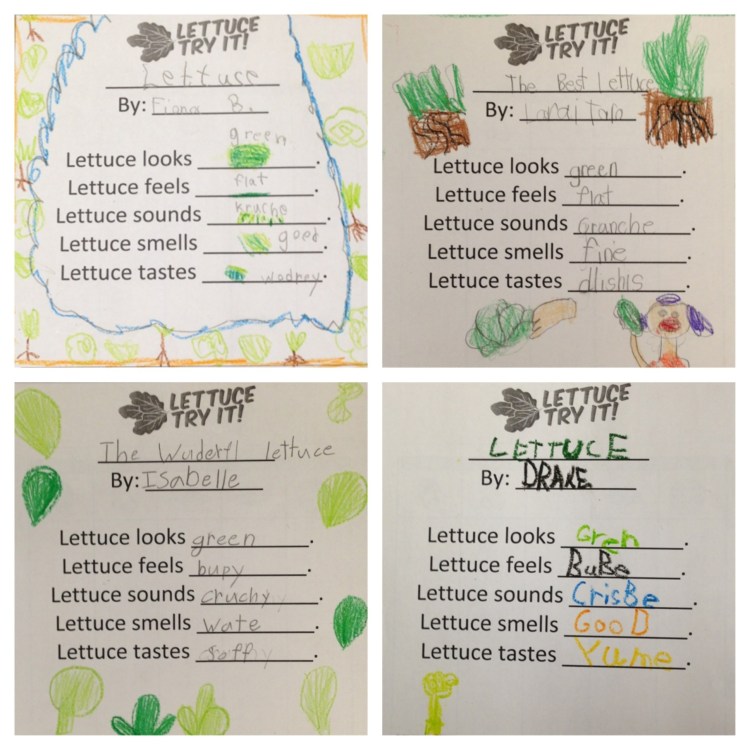 LETTUCE
TRY IT!
Lettuce
By: Fiona B.
green
Lettuce looks.
Lettuce feels flat.
Lettuce sounds kruche.
Lettuce smells goed.
Lettuce tastes wodrey.
LETTUCE
TRY IT!
The Best Lettuce
By:
Lettuce looks green.
Lettuce feels flat.
Lettuce sounds Cranche.
Lettuce smells fine.
Lettuce tastes dlishis.
LETTUCE
TRY IT!
The Wuderfl lettuce
By: ISabelle
Lettuce looks green.
Lettuce feels bupy.
Lettuce sounds cruchy.
Lettuce smells wate.
Lettuce tastes.
LETTUCE
TRY IT!
LETTUCE
By: DRAKE
Lettuce looks Gren.
Lettuce feels BuBe.
Lettuce sounds CrisBe.
Lettuce smells GooD.
Lettuce tastes Yume.